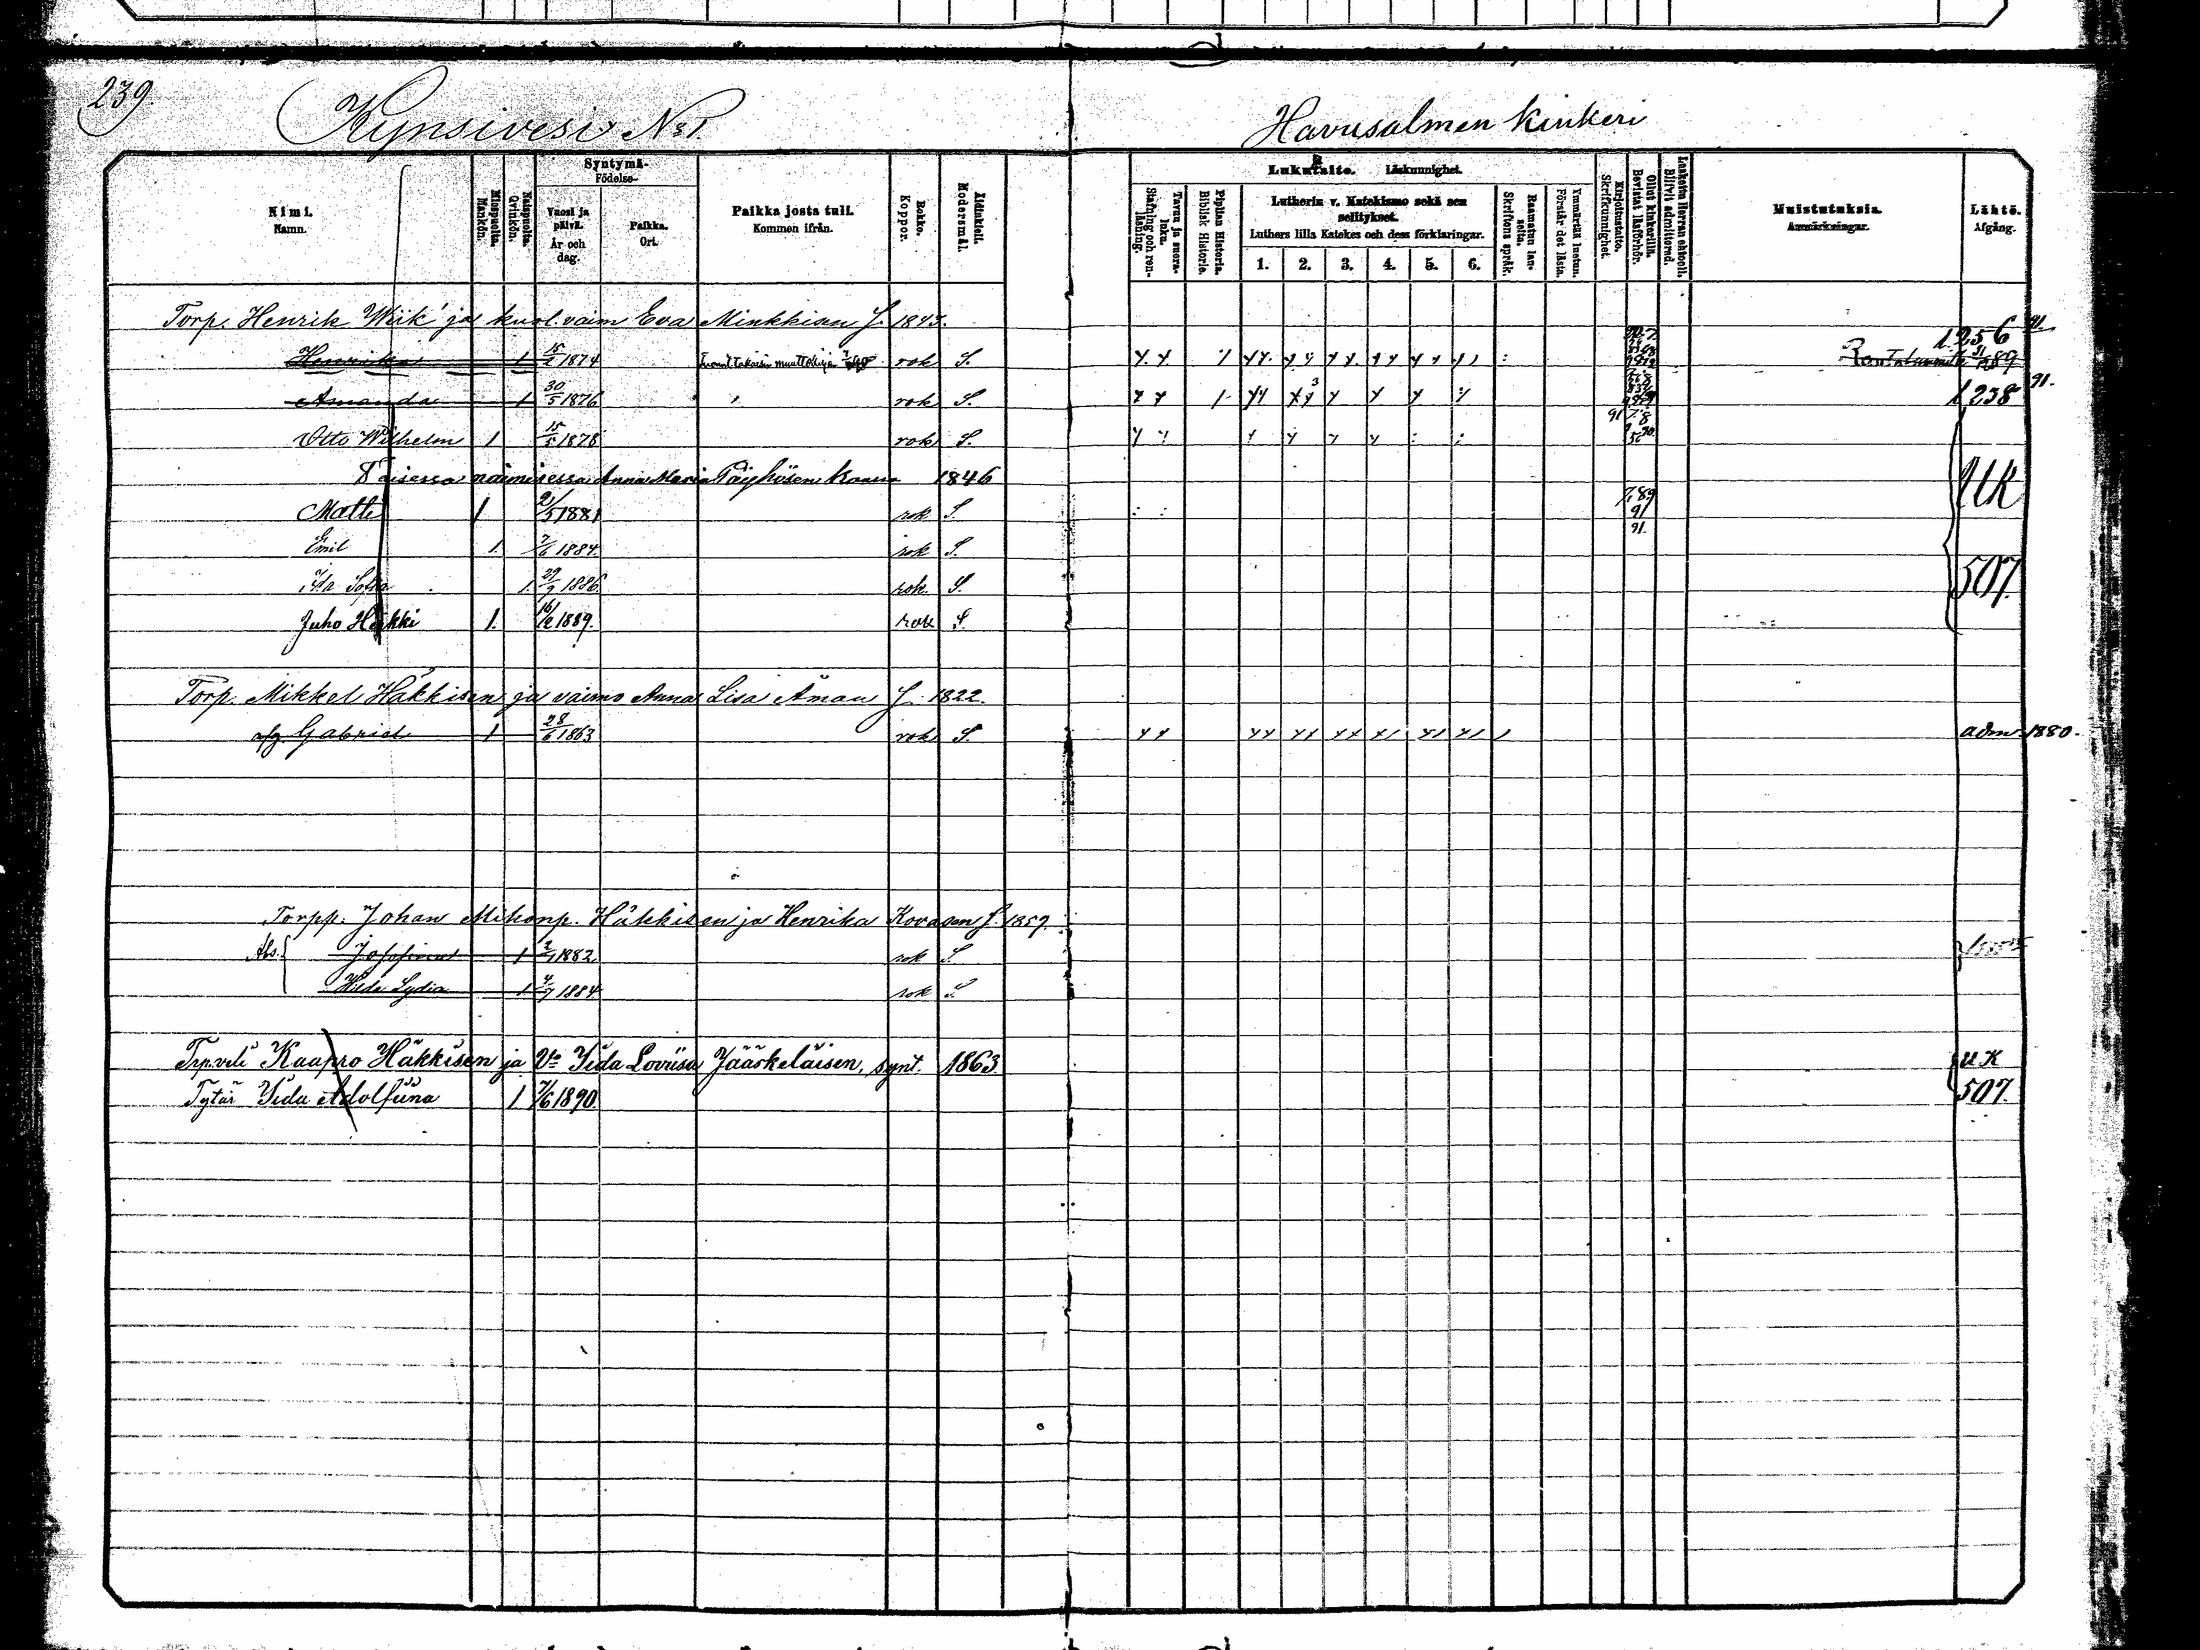 239.
Kynsivesi № 1.
Havusalmen kinkeri
Nimi. Namn.
Miespuolta. Mankön.
Naispuolta. Qvinkön.
Syntymä- Födelse-
Vuosi ja päivä. År och dag.
Paikka. Ort.
Paikka josta tuli. Kommen ifrån.
Rokko. Koppor.
Äidinkieli. Modersmål.
Lukutaito. Läskunnighet.
Tavaa ja suora-luku. Stafning och ren-läsning.
Piplian Historia. Biblisk Historie.
Lutherin v. Katekismo sekä sen selitykset.
Luthers lilla Katekes och dess förklaringar.
1. 2. 3. 4. 5. 6.
Raamatun lau-seita. Skriftens språk.
Ymmärtää luetun. Förstår det lästa.
Kirjoitustaito. Skrifkunnighet.
Ollut kinkerillä. Bevistat läsförhör.
Laskettu Herran ehtooll. Blifvit admitterad.
Muistutuksia. Anmärkningar.
Lähtö. Afgång.
Torp. Henrik Wiik ja kuol. vaim Eva Minkkisen f. 1843.
Henrika 1 15/2 1874 rok S. 1256 91
Amanda 1 30/5 1876 rok S. 1238 91.
Otto Wilhelm 1 15/5 1878 rok S.
naimisessa Anna Maria Pöyhösen kanssa 1846
Matti 1 2/5 1881 rok S. UK
Emil 1. 7/6 1884. rok S.
Ida Sofia 1. 29/9 1886. rok. S. 507.
Juho Heikki 1. 16/12 1889. rok S.
Torp. Mikkel Häkkisen ja vaimo Anna Lisa Åman f. 1822.
Gabriel 1 28/6 1863 rok S. adm. 1880.
Torpp: Johan Mikonp. Häkkisen ja Henrika Kovasen f. 1859.
Josefina 1 1882 rok S.
Hilda Lydia 1 4/7 1884 rok S.
Trp.veli Kaapro Häkkisen ja Vo Iida Loviisa Jääskeläisen, synt. 1863 UK
Tytär Iida Adolfiina 1 7/6 1890. 507.